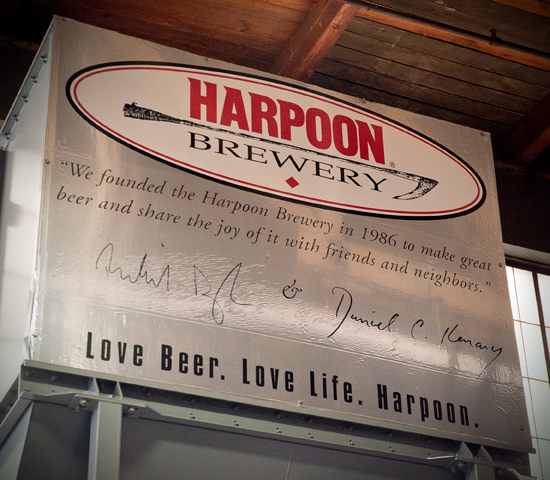 HARPOON
BREWERY®
“We founded the Harpoon Brewery in 1986 to make great
beer and share the joy of it with friends and neighbors.”
& Daniel C. Kenary
Love Beer. Love Life. Harpoon.